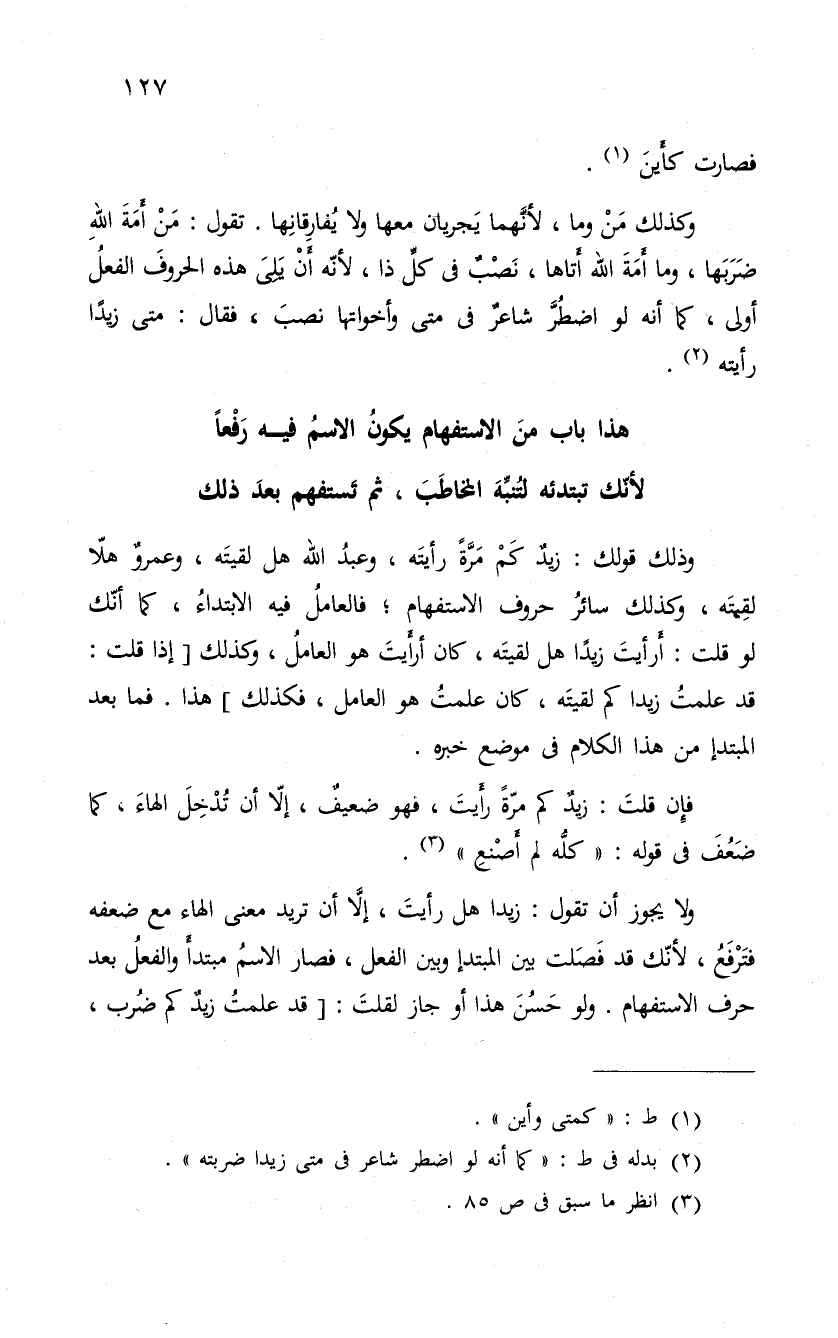 ١٢٧
فصارت كأَينَ (١) .
وكذلك مَنْ وما ، لأنَّهما يَجريان معها ولا يُفارِقانِها . تقول : مَنْ أَمَةَ اللهِ
ضَرَبَها ، وما أَمَةَ الله أَتاها ، نَصْبٌ فى كلِّ ذا ، لأنّه أَنْ يَلِىَ هذه الحروفَ الفعلُ
أولى ، كما أنه لو اضطُرَّ شاعرٌ فى متى وأخواتها نصبَ ، فقال : متى زيدًا
رأيته (٢) .
هذا باب منَ الاستفهام يكونُ الاسمُ فيـــه رَفْعاً
لأنّك تبتدئه لتُنبِّهَ المخاطَبَ ، ثم تَستفهم بعدَ ذلك
وذلك قولك : زيدٌ كَمْ مَرَّةً رأيتَه ، وعبدُ الله هل لقيتَه ، وعمروٌ هلّا
لقِيتَه ، وكذلك سائرُ حروف الاستفهام ؛ فالعاملُ فيه الابتداءُ ، كما أنّك
لو قلت : أَرأيتَ زيدًا هل لقيتَه ، كان أرأَيتَ هو العاملُ ، وكذلك [ إذا قلت :
قد علمتُ زيدا كم لقيتَه ، كان علمتُ هو العامل ، فكذلك ] هذا . فما بعد
المبتدإ من هذا الكلام فى موضع خبره .
فإِن قلتَ : زيدٌ كم مرّةً رأَيتَ ، فهو ضعيفٌ ، إلّا أن تُدْخِلَ الهاءَ ، كما
ضَعُفَ فى قوله : « كلُّه لم أَصْنعِ » (٣) .
ولا يجوز أن تقول : زيدا هل رأيتَ ، إلَّا أن تريد معنى الهاء مع ضعفه
فتَرْفَعُ ، لأنّك قد فَصَلت بين المبتدإ وبين الفعل ، فصار الاسمُ مبتدأً والفعلُ بعد
حرف الاستفهام . ولو حَسُنَ هذا أو جاز لقلتَ : [ قد علمتُ زيدٌ كم ضُرب ،
(١) ط : « كمتى وأين » .
(٢) بدله فى ط : « كما أنه لو اضطر شاعر فى متى زيدا ضربته » .
(٣) انظر ما سبق فى ص ٨٥ .